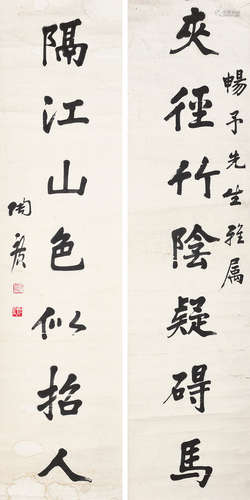 暢予先生雅屬
夾徑竹陰疑碍馬
隔江山色似招人